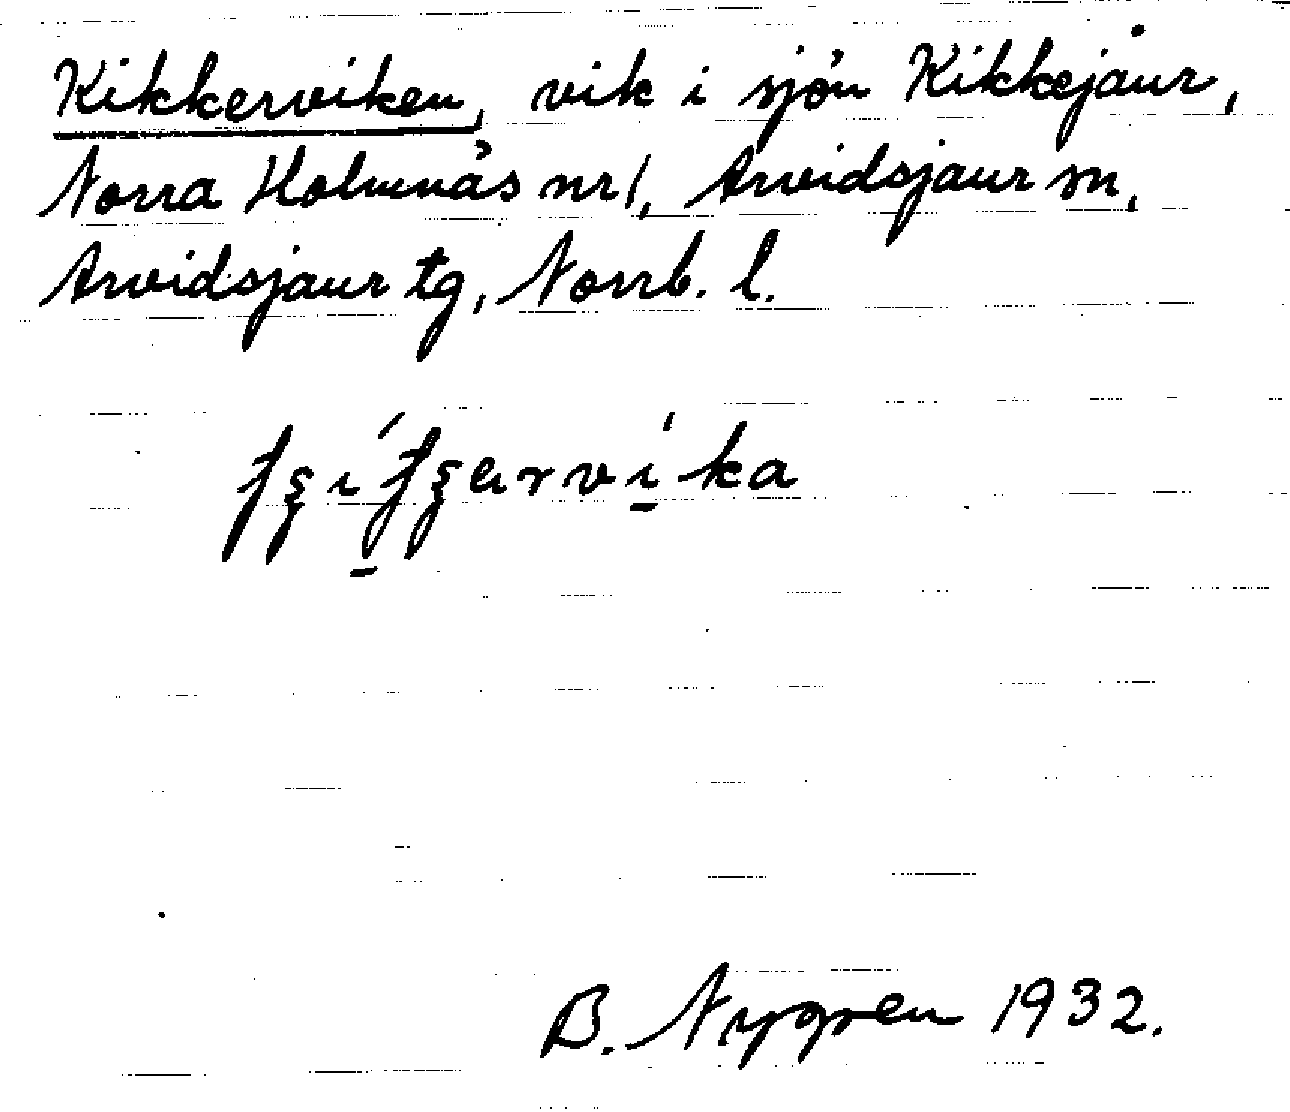 Kikkerviken, vik i sjön Kikkejaur,
Norra Holmnäs nr 1, Arvidsjaur sn,
Arvidsjaur tg, Norrb. l.
B. Nygren 1932.